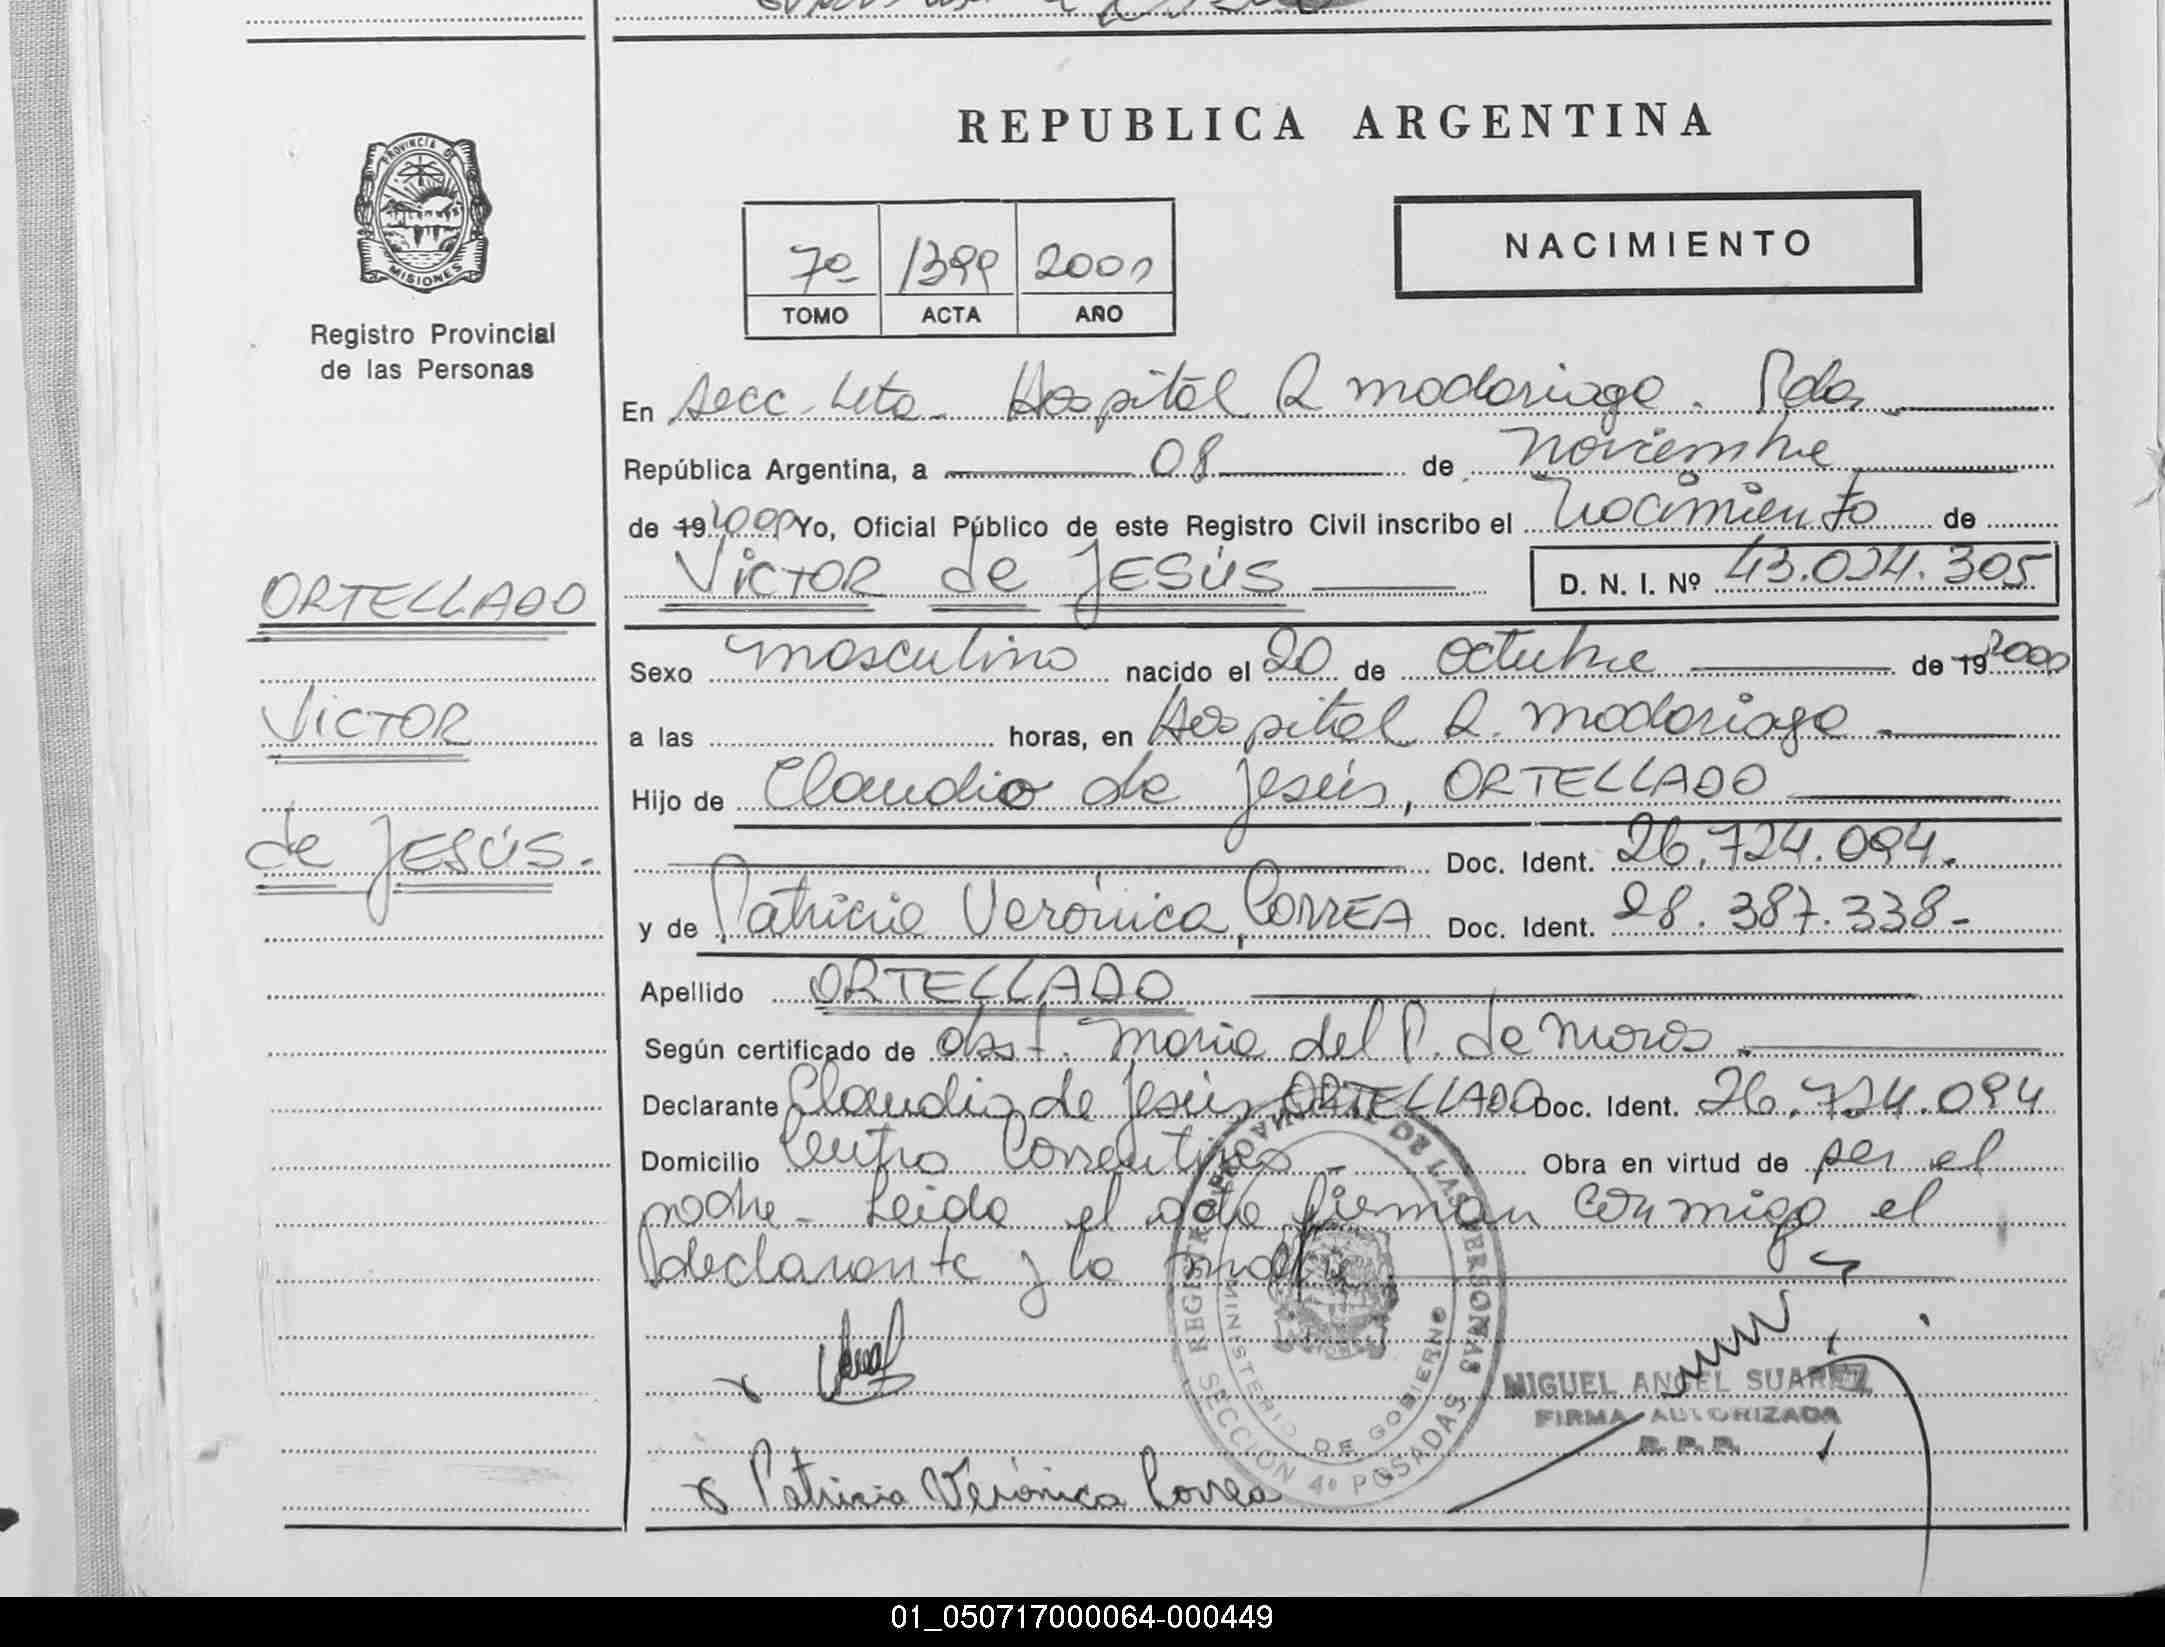 REPUBLICA ARGENTINA
PROVINCIA DE
MISIONES
Registro Provincial
de las Personas
NACIMIENTO
7º 1399 2000
TOMO ACTA AÑO
En Secc. 4ta. Hospital R Madariaga. Pdas
República Argentina, a 08 de Noviembre
de 19 2000 Yo, Oficial Público de este Registro Civil inscribo el Nacimiento de
VICTOR de JESÚS D. N. I. Nº 43.024.305
ORTELLADO
VICTOR
de JESÚS.
Sexo masculino nacido el 20 de octubre de 19 2000
a las horas, en Hospital R. Madariaga
Hijo de Claudio de Jesús, ORTELLADO
Doc. Ident. 26.724.094.
y de Patricia Verónica, CORREA Doc. Ident. 28.387.338-
Apellido ORTELLADO
Según certificado de obst. Maria del P. de Moros
Declarante Claudio de Jesús ORTELLADO Doc. Ident. 26.724.094
Domicilio Centro Correntinos Obra en virtud de ser el
padre. Leida el acta firman conmigo el
declarante y la madre
REGISTRO PROVINCIAL DE LAS PERSONAS
MINISTERIO DE GOBIERNO
SECCIÓN 4º POSADAS
MIGUEL ANGEL SUAREZ
FIRMA AUTORIZADA
R. P. P.
x Patricia Verónica Correa
01_050717000064-000449